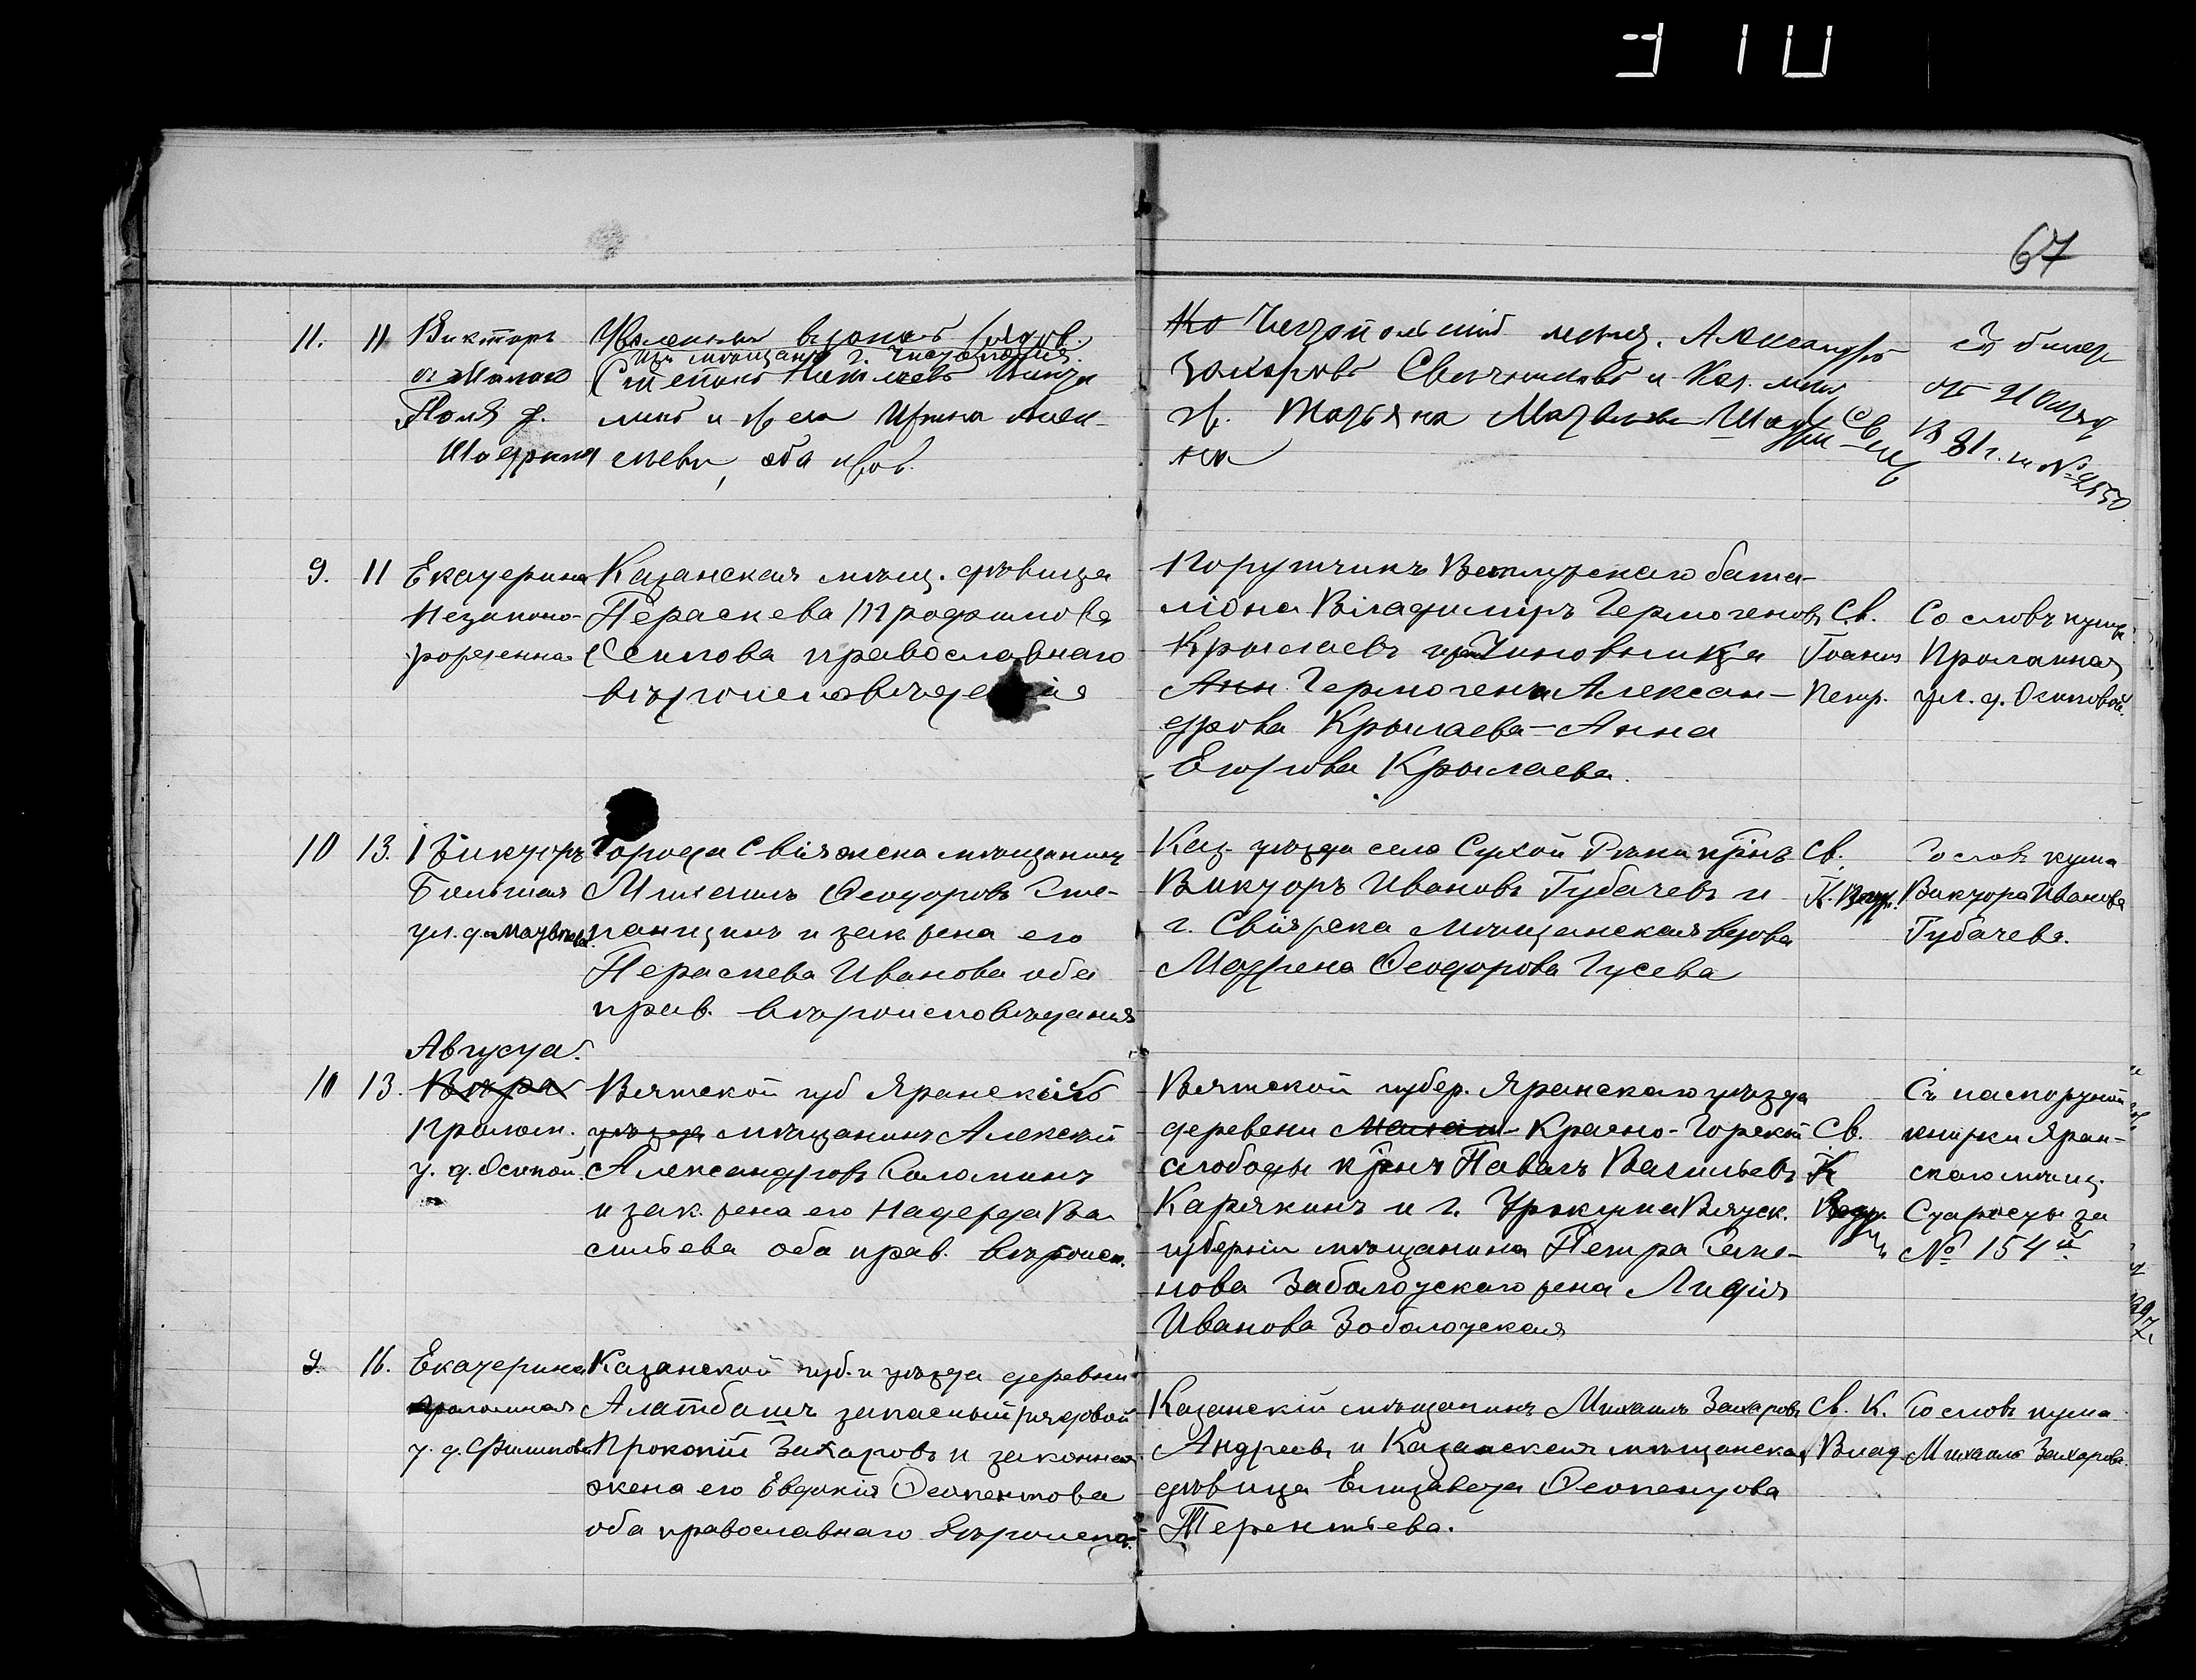 310
67
11. 11 Викторъ
на Малой
Полѣ д.
Шадрина
Уволенный въ запасъ рядов.
изъ мѣщанъ г. Чистополя.
Степанъ
и ж. его Ирина Алек-
сѣева, оба прав.
Чистопольскій мѣщ. Александръ
Захаровъ Свѣчниковъ и Каз. мѣщ.
Св.
билет
81 г. за № 2550
9. 11 Екатерина
Незаконно-
рожденная
Казанская мѣщ. дѣвица
Параскева Трофимова
Осипова православнаго
вѣроисповѣденія
Порутчикъ Ветлужскаго бата-
ліона Владиміръ Гермогеновъ
Крылаевъ и Чиновника
Анн Гермогена Алексан-
дрова Крылаева - Анна
Егорова Крылаева.
Св.
Іоаннъ
Петр.
Со словъ кумы
Проломная
ул. д. Осиповой.
10 13. Викторъ
Большая
ул. д. Матвѣева.
Города Свіяжска мѣщанинъ
Михаилъ Ѳеодоровъ Сте-
панцинъ и зак. жена его
Параскева Иванова оба
прав. вѣроисповѣданія
Каз. уѣзда села Сухой Рѣки крнъ
Викторъ Ивановъ Губачевъ и
г. Свіяжска мѣщанская вдова
Матрена Ѳеодорова Гусева
Св.
К.
Со словъ кума
Виктора Иванова
Губачева.
Августа.
10 13. Вѣра
Пролом.
у. д. Осипой.
Вятской губ Яранскій
уѣзда мѣщанинъ Алексѣй
Александровъ Соломинъ
и зак. жена его Надежда Ва-
сильева оба прав. вѣроисп.
Вятской губер. Яранскаго уѣзда
деревени Красно-Горской
слободы крнъ Павелъ Васильевъ
Карякинъ и г. Уржума Вятск.
губерніи мѣщанина Петра Семе-
нова Заболотскаго жена Лидія
Иванова Заболотская
Св.
К
Съ паспортной
книжки Яран-
скаго мѣщ.
Старосты за
№ 154й.
9. 16. Екатерина
проломная
у. д. Филипова
Казанской губ. и уѣзда деревни
Алатбашъ запасный рядовой
Прокопій Захаровъ и законная
жена его Евдокія Ѳеопентова
оба православнаго вѣроиспов.
Казанскій мѣщанинъ Михаилъ Захаровъ
Андреевъ и Казанская мѣщанская
дѣвица Елизавета Ѳеопентова
Терентьева.
Св. К.
Влад.
Со словъ кума
Михаила Захарова.